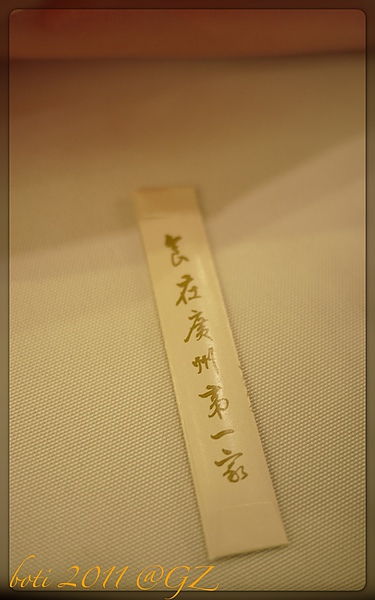 食在廣州第一家
boti 2011 @GZ